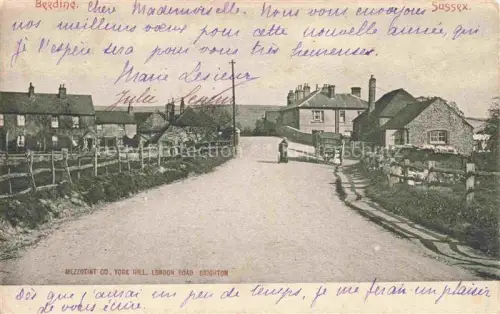 Beeding. Sussex.
Chère Mademoiselle. Nous vous envoyons
nos meilleurs vœux pour cette nouvelle année, qui,
je l'espère sera pour vous très heureuse.
Marie Lesieur
Julie
MEZZOTINT CO., YORK HILL, LONDON ROAD BRIGHTON
Dès que j'aurai un peu de temps, je me ferai un plaisir
de vous écrire.